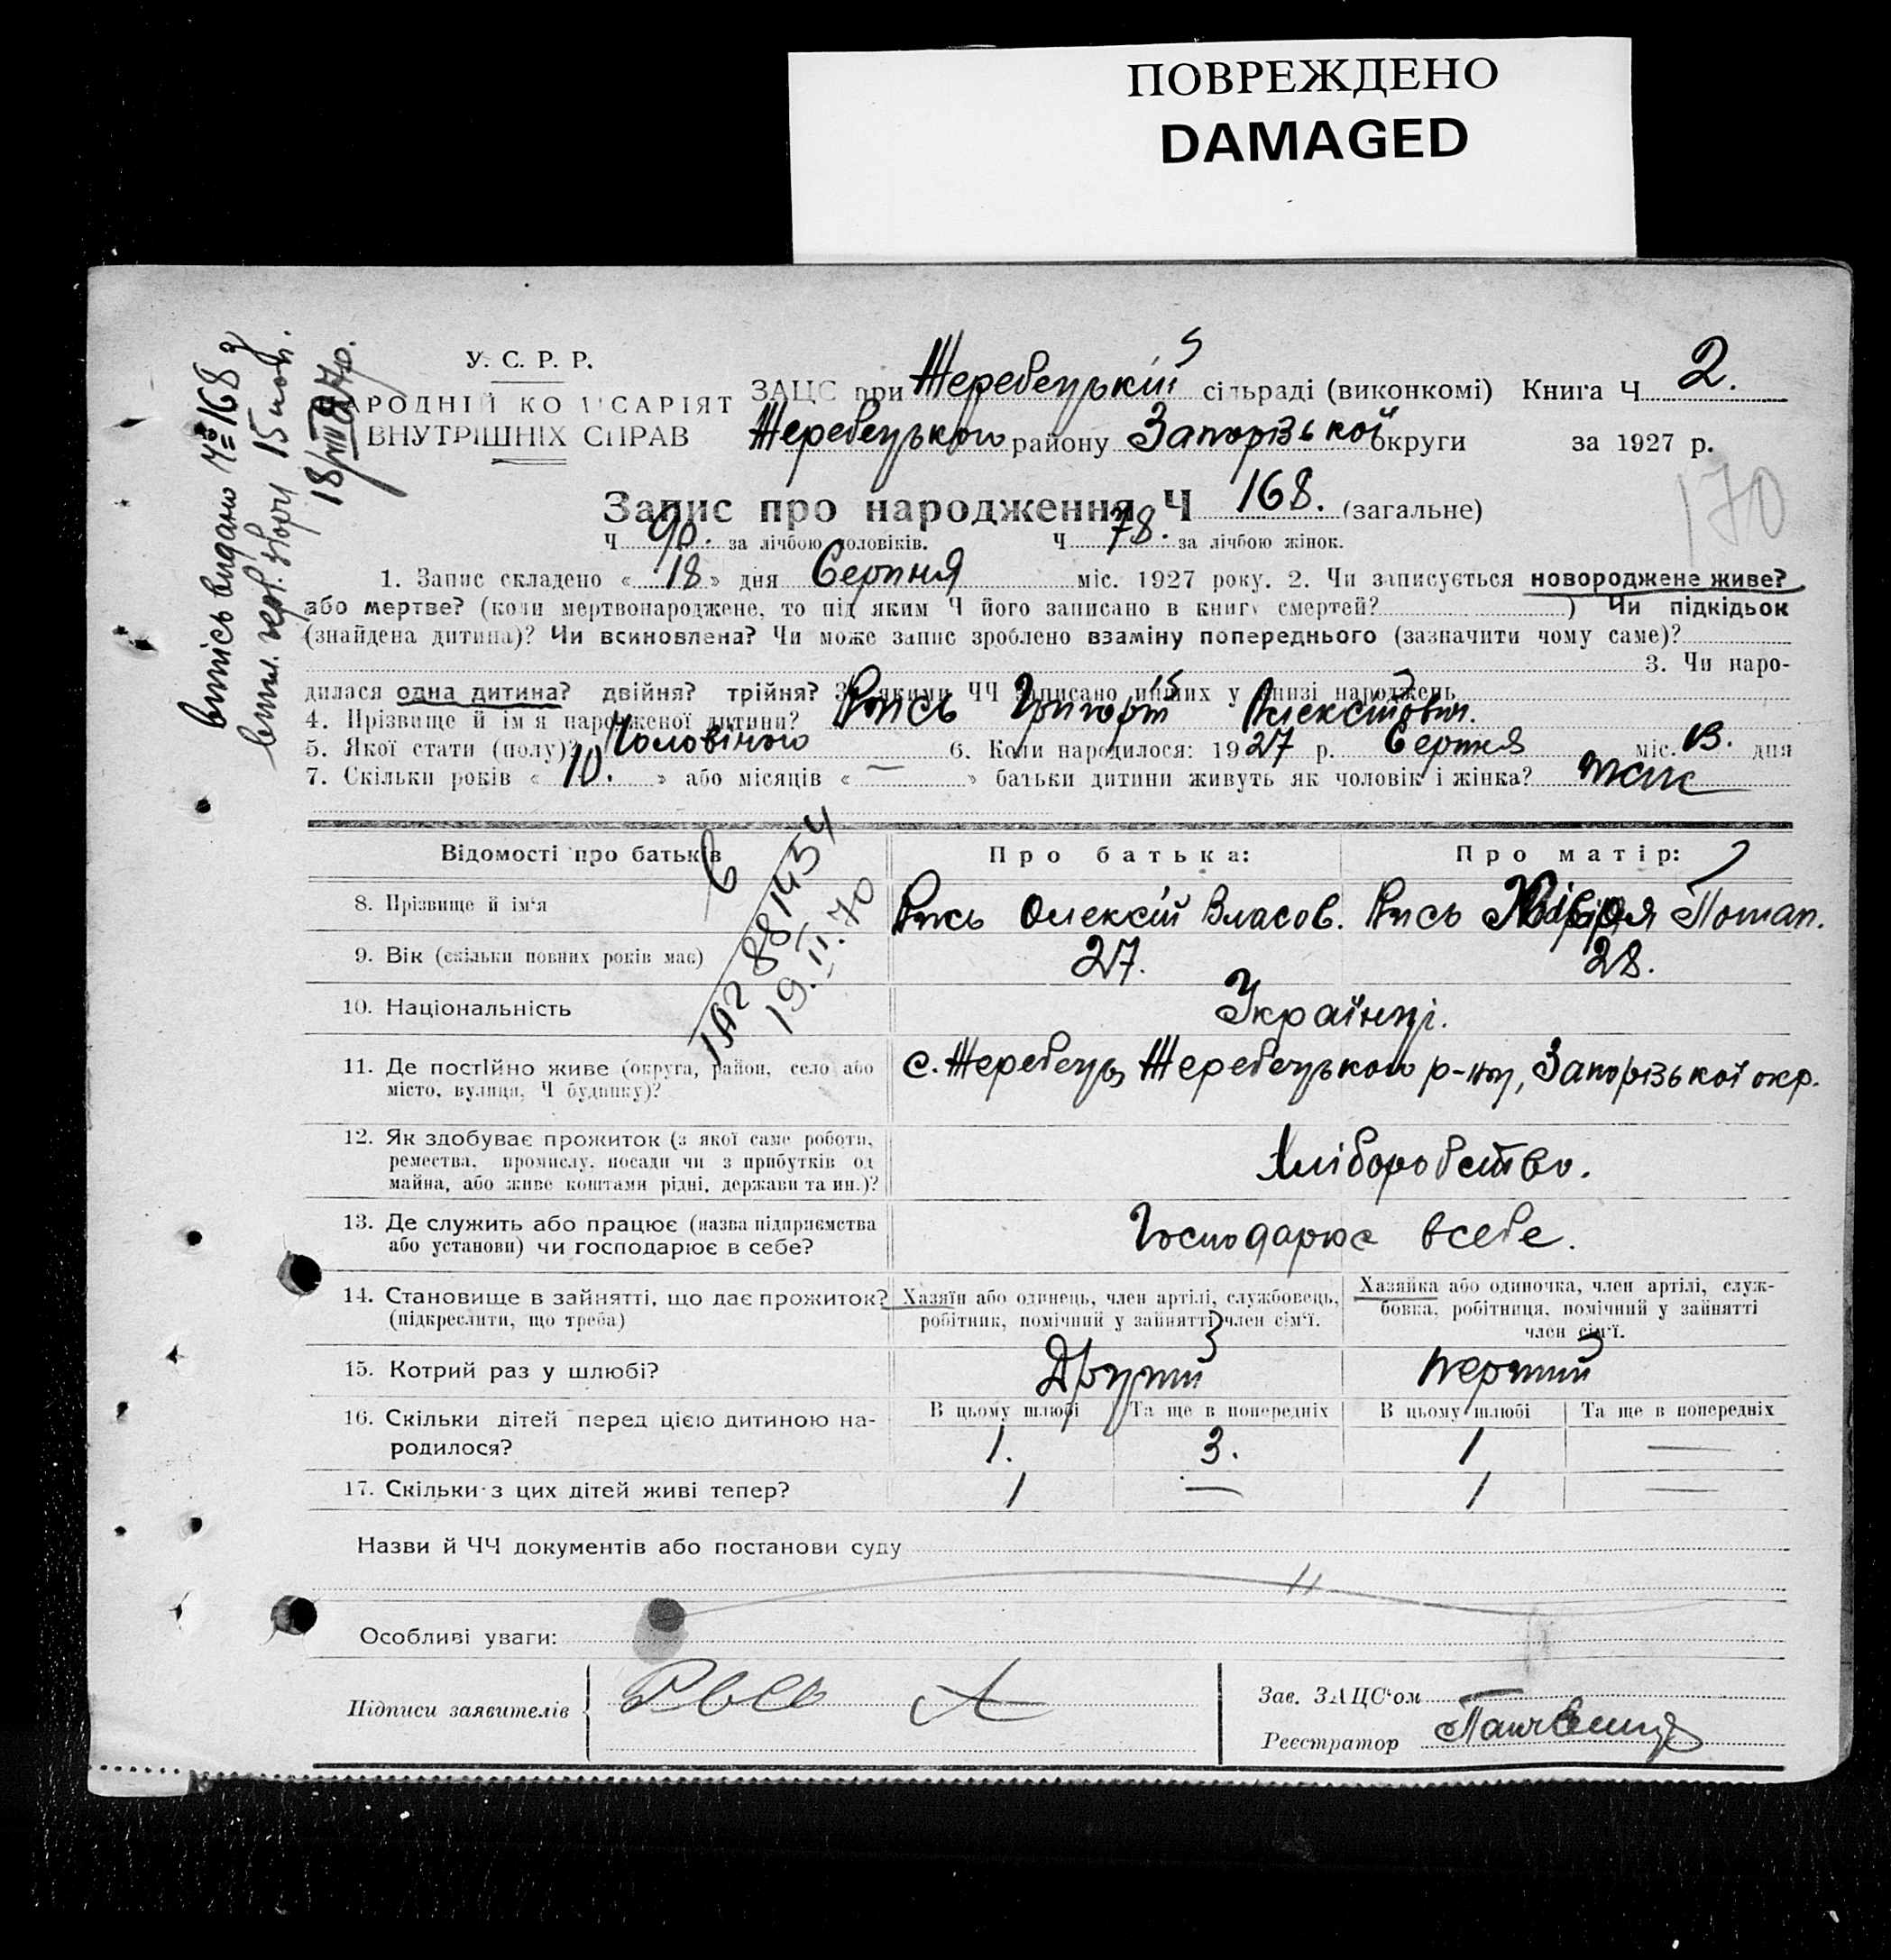 ПОВРЕЖДЕНО
DAMAGED
У. С. Р. Р.
НАРОДНІЙ КОМІСАРІЯТ
ВНУТРІШНІХ СПРАВ
ЗАЦС при Жеребецькій сільраді (виконкомі) Книга Ч 2.
Жеребецького району Запорізької округи за 1927 р.
Запис про народження Ч 168. (загальне)
170
Ч 90. за лічбою чоловіків. Ч 78. за лічбою жінок.
1. Запис складено « 18 » дня Серпня міс. 1927 року. 2. Чи записується новороджене живе?
або мертве? (коли мертвонароджене, то під яким Ч його записано в книгу смертей? ) Чи підкідьок
(знайдена дитина)? Чи всиновлена? Чи може запис зроблено взаміну попереднього (зазначити чому саме)?
3. Чи наро-
дилася одна дитина? двійня? трійня? За якими ЧЧ записано инших у книзі народжень
4. Прізвище й ім'я народженої дитини? Рись Григорій Алексійович.
5. Якої стати (полу)? Чоловічого 6. Коли народилося: 1927 р. Серпня міс. 13. дня
7. Скільки років « 10. » або місяців « — » батьки дитини живуть як чоловік і жінка?
випісь видано № 168
18/VIII 27р.
Відомості про батьків
Про батька:
Про матір:
8. Прізвище й ім'я Рись Олексій Власов. Рись Потап.
9. Вік (скільки повних років має) 27. 28.
10. Національність Українці.
11. Де постійно живе (округа, район, село або місто, вулиця, Ч будинку)? с. Жеребець Жеребецького р-ну, Запорізької окр.
12. Як здобуває прожиток (з якої саме роботи, ремества, промислу, посади чи з прибутків од майна, або живе коштами рідні, держави та ин.)? Хліборобство.
13. Де служить або працює (назва підприємства або установи) чи господарює в себе? Господарює всебе.
14. Становище в зайнятті, що дає прожиток? (підкреслити, що треба)
Хазяїн або одинець, член артілі, службовець, робітник, помічний у зайнятті член сім'ї.
Хазяйка або одиночка, член артілі, служ-
бовка, робітниця, помічний у зайнятті
член сім'ї.
15. Котрий раз у шлюбі? Другий перший
16. Скільки дітей перед цією дитиною на-
родилося?
В цьому шлюбі Та ще в попередніх В цьому шлюбі Та ще в попередніх
1. 3. 1 —
17. Скільки з цих дітей живі тепер? 1 — 1 —
19.II.70
Назви й ЧЧ документів або постанови суду
Особливі уваги:
Підписи заявителів Рысь А
Зав. ЗАЦС'ом
Реєстратор